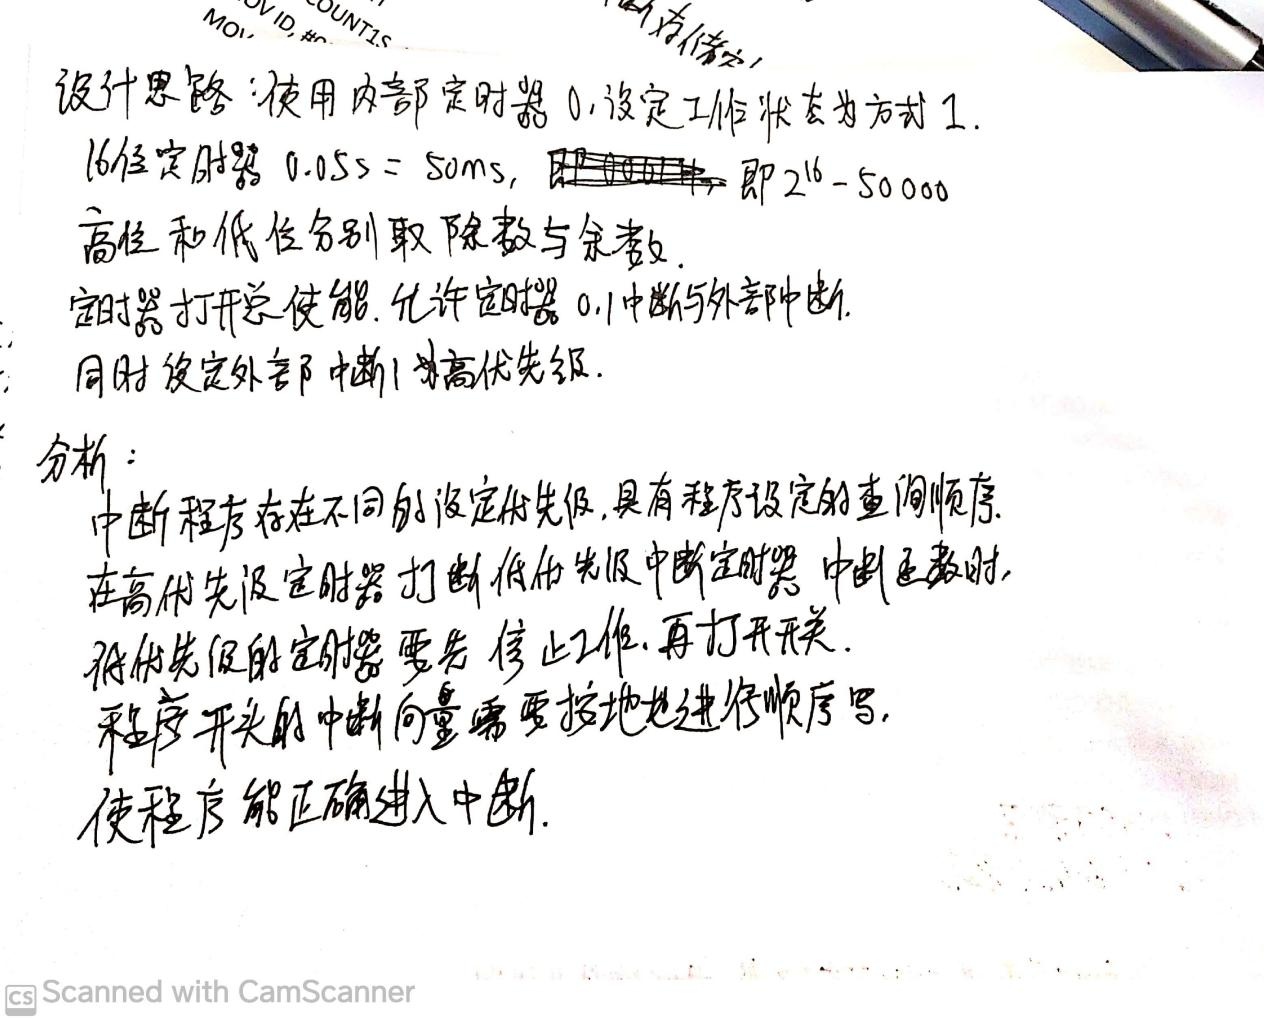 COUNT1S
MOV ID, #0
MOV
设计思路:使用内部定时器0,设定工作状态为方式1.
16位定时器 0.05s = 50ms, 即2¹⁶-50000
高位和低位分别取除数与余数.
定时器打开总使能.允许定时器0,1中断与外部中断.
同时设定外部中断1为高优先级.
分析:
中断程序存在不同的设定优先级,具有程序设定的查询顺序.
在高优先级定时器打断低优先级中断定时器中断函数时,
低优先级的定时器要先停止工作,再打开开关.
程序开头的中断向量需要按地址进行顺序写,
使程序能正确进入中断.
CS Scanned with CamScanner